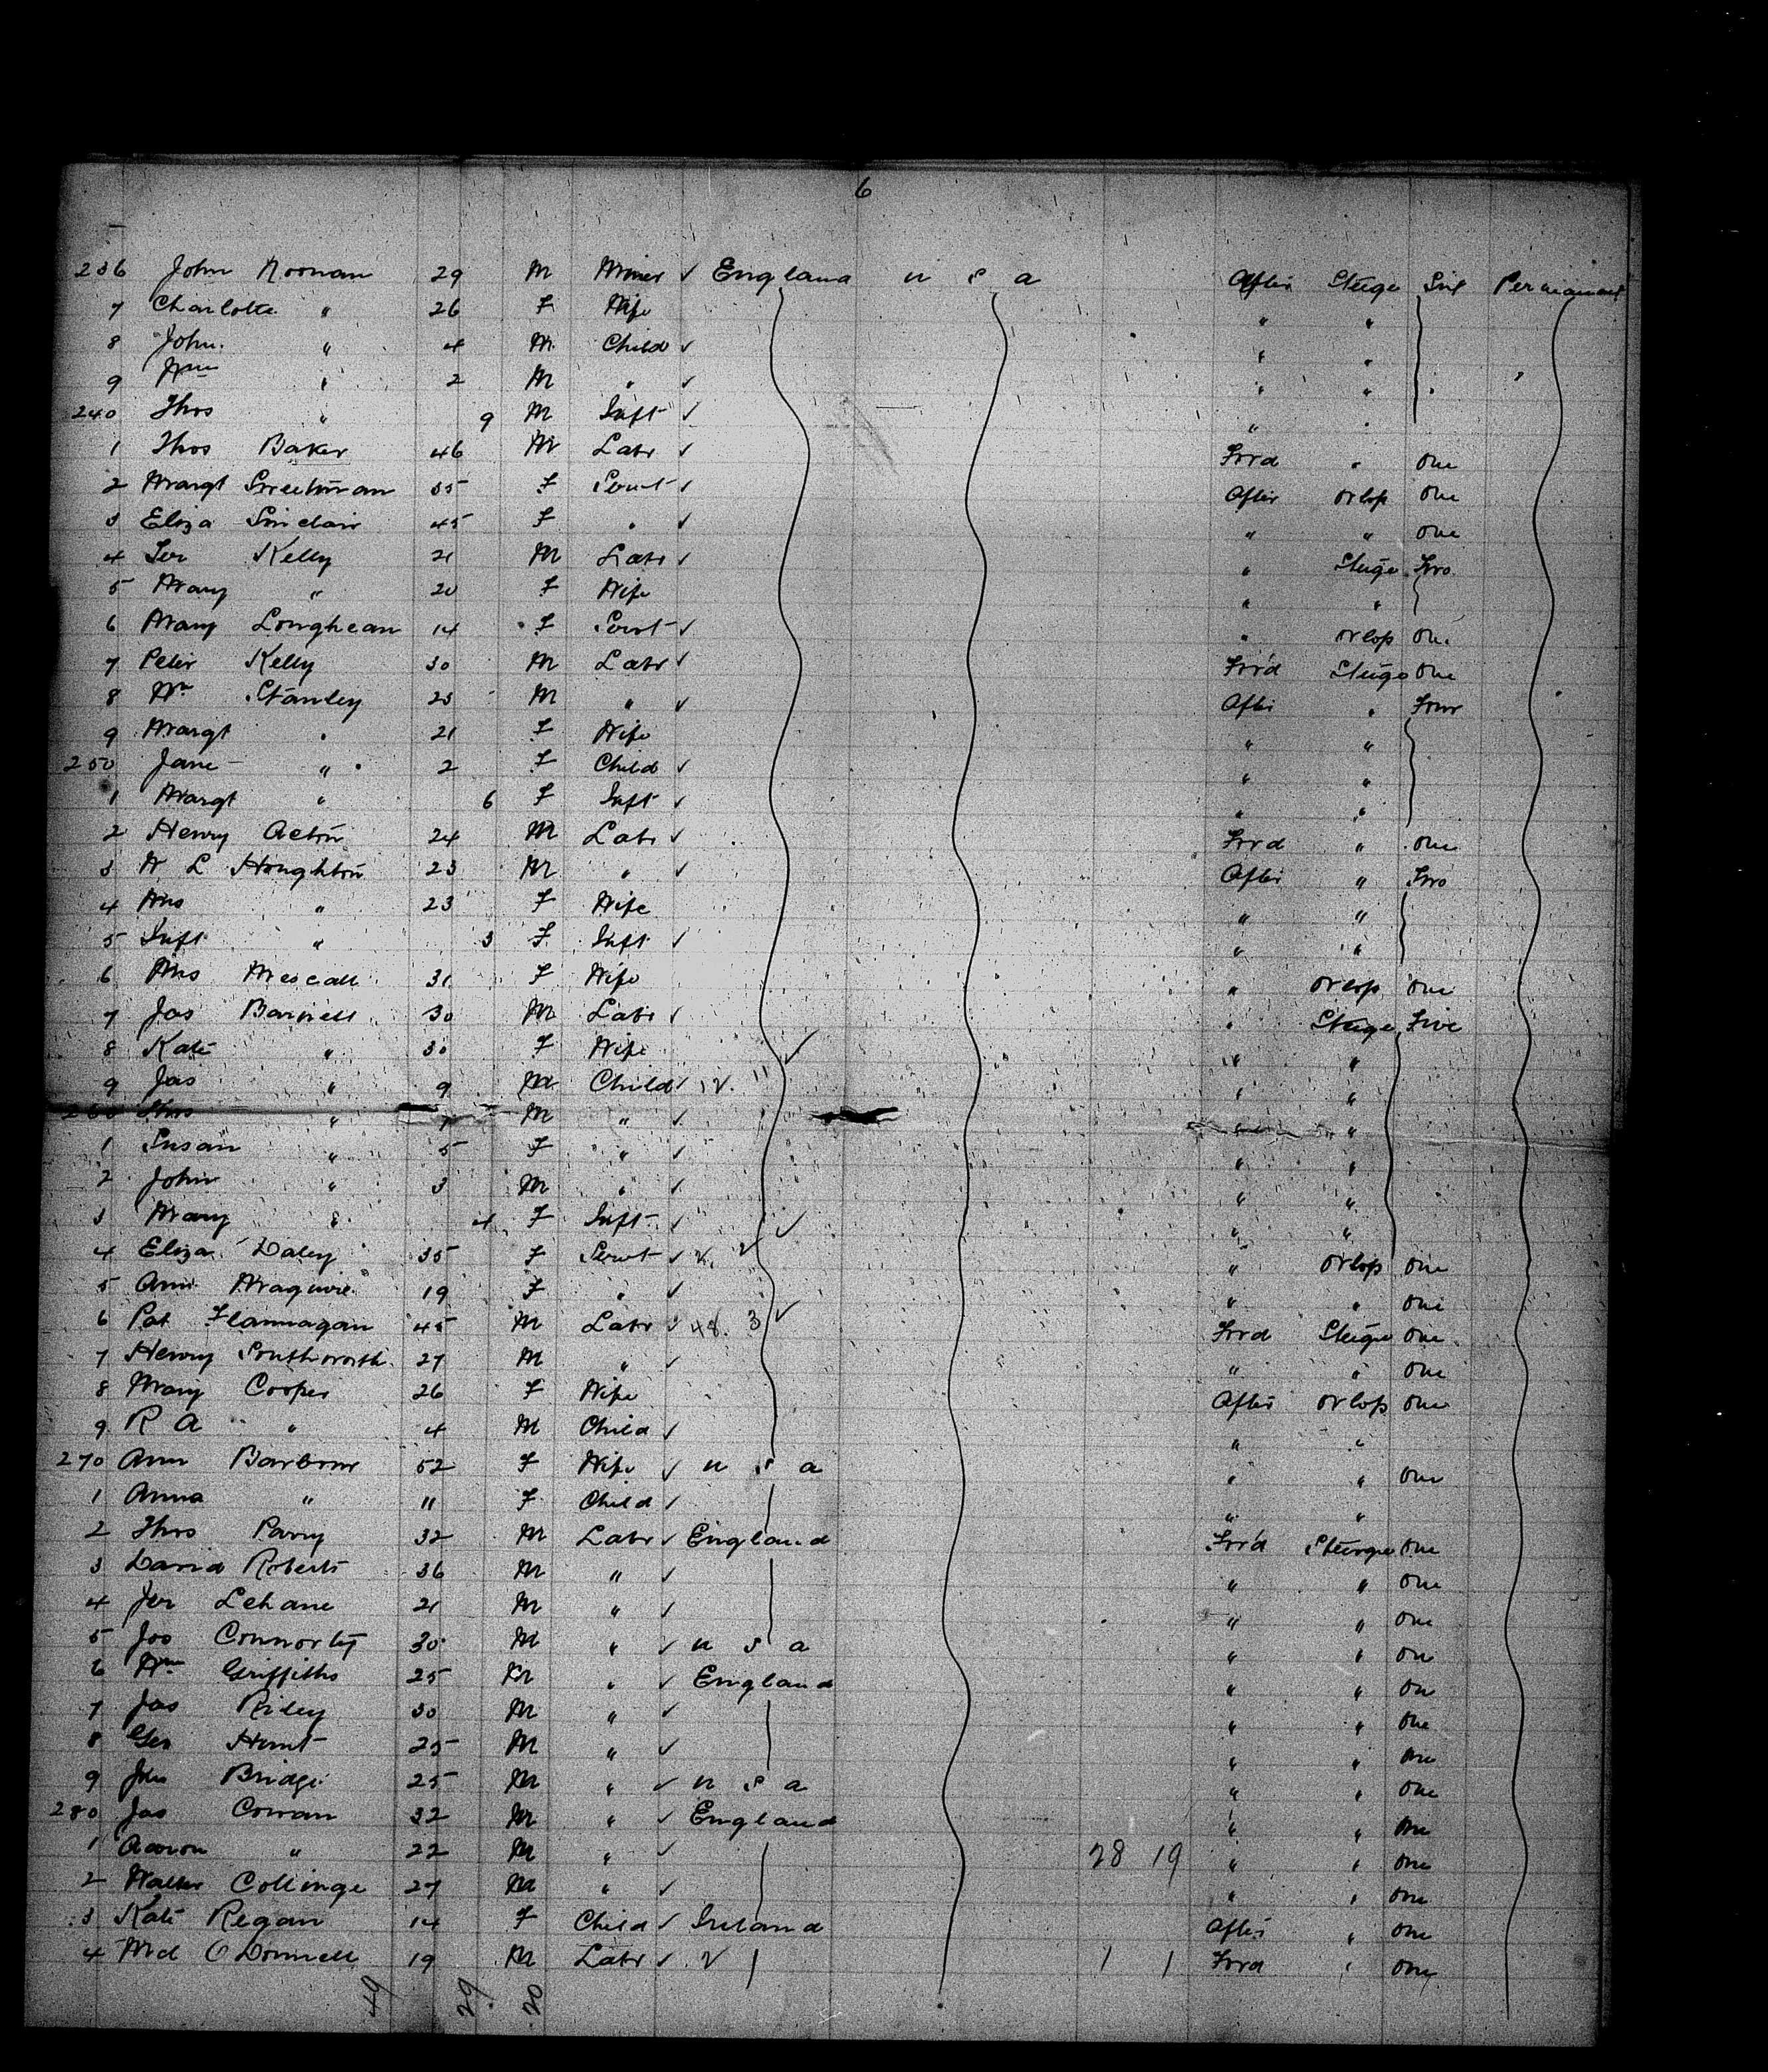 6
236 John Noonan 29 M Miner ✓ England U S A After Steige Six Permanent
7 Charlotte " 26 F Wife " "
8 John " 4 M Child ✓ " "
9 Wm " 2 M " ✓ " "
240 Thos " 9 M Inft ✓ " "
1 Thos Baker 46 M Labr ✓ Forrd " One
2 Margt Streetman 35 F Servt ✓ After Orlop One
3 Eliza Sinclair 45 F " ✓ " " One
4 Jer Kelly 21 M Labr ✓ " Steige Two
5 Mary " 20 F Wife " "
6 Mary Longhean 14 F Servt ✓ " Orlop One
7 Peter Kelly 30 M Labr ✓ Forrd Steige One
8 Wm Stanley 23 M " ✓ After " Four
9 Margt " 21 F Wife " "
250 Jane " 2 F Child ✓ " "
1 Margt " 6 F Inft ✓ " "
2 Henry Acton 24 M Labr ✓ Forrd " One
3 W L Houghton 23 M " ✓ After " Two
4 Mrs " 23 F Wife " "
5 Inft " 3 F Inft ✓ " "
6 Mrs Mescall 31 F Wife " Orlop One
7 Jas Barnell 30 M Labr ✓ " Steige Five
8 Kate " 30 F Wife ✓ " "
9 Jas " 9 M Child ✓ " "
260 Thos " 7 M " ✓ " "
1 Susan " 5 F " ✓ " "
2 John " 3 M " ✓ " "
3 Mary " 4 F Inft ✓ ✓ " "
4 Eliza Daley 35 F Servt ✓ " Orlop One
5 Ann Maguire 19 F " ✓ " " One
6 Pat Flannagan 45 M Labr ✓ 48 3 ✓ Forrd Steige One
7 Henry Southworth 27 M " ✓ " " One
8 Mary Cooper 26 F Wife After Orlop One
9 R A " 4 M Child ✓ " "
270 Ann Barbour 52 F Wife ✓ U S A " " One
1 Anna " 11 F Child ✓ " "
2 Thos Parry 32 M Labr ✓ England Forrd Steerge One
3 David Roberts 36 M " ✓ " " One
4 Jer Lehane 21 M " ✓ " " One
5 Jos Connorty 30 M " ✓ U S A " " One
6 Wm Griffiths 25 M " ✓ England " " One
7 Jas Riley 30 M " ✓ " " One
8 Geo Hunt 25 M " ✓ " " One
9 John Bridge 25 M " ✓ U S A " " One
280 Jas Cowan 32 M " ✓ England " " One
1 Aaron " 22 M " ✓ 28 19 " " One
2 Walter Collinge 27 M " ✓ " " One
3 Kate Regan 14 F Child ✓ Ireland After " One
4 Md O'Donnell 19 M Labr ✓ ✓ 1 1 Forrd " One
49 29 20